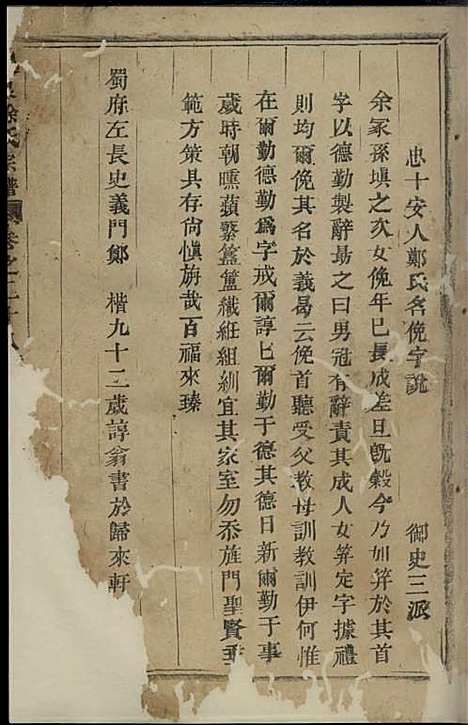 忠十安人鄭氏名俛字說
御史三派
余冢孫塤之次女俛年已長成差旦旣穀今乃加笄於其首
字以德勤製辭勗之曰男冠有辭責其成人女笄定字據禮
則均爾俛其名於義曷云俛首聽受父教母訓教訓伊何惟
在爾勤德勤爲字戒爾諄諄爾勤于德其德日新爾勤于事
歲時朝曛蘋蘩簠簋織紝組紃宜其家室勿忝旌門聖賢垂
範方策具存尙愼旃哉百福來臻
蜀府左長史義門鄭 楷九十二歲諄翁書於歸來軒
徐氏宗譜 卷之二十